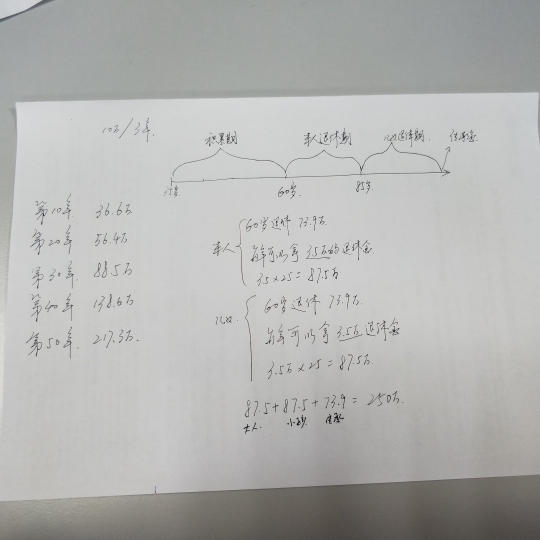 10万/3年.
积累期 本人退休期 儿女退休期 传承金
60岁 85岁
第10年 36.6万
第20年 56.4万
第30年 88.5万
第40年 138.6万
第50年 217.3万
本人
60岁退休 73.9万
每年可以拿 3.5万的退休金
3.5×25=87.5万
儿女
60岁退休 73.9万
每年可以拿 3.5万退休金
3.5万×25=87.5万
87.5+87.5+73.9=250万
大人 小孩 传承